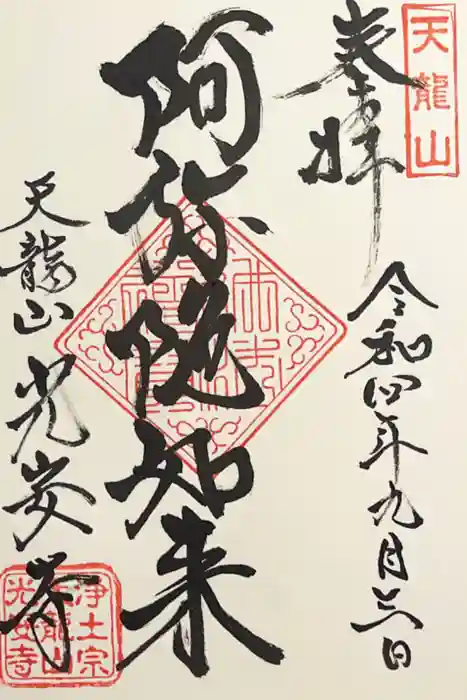 天龍山
奉拝
令和四年九月六日
阿弥陀如来
天龍山 光安寺
浄土宗
天龍山
光安寺